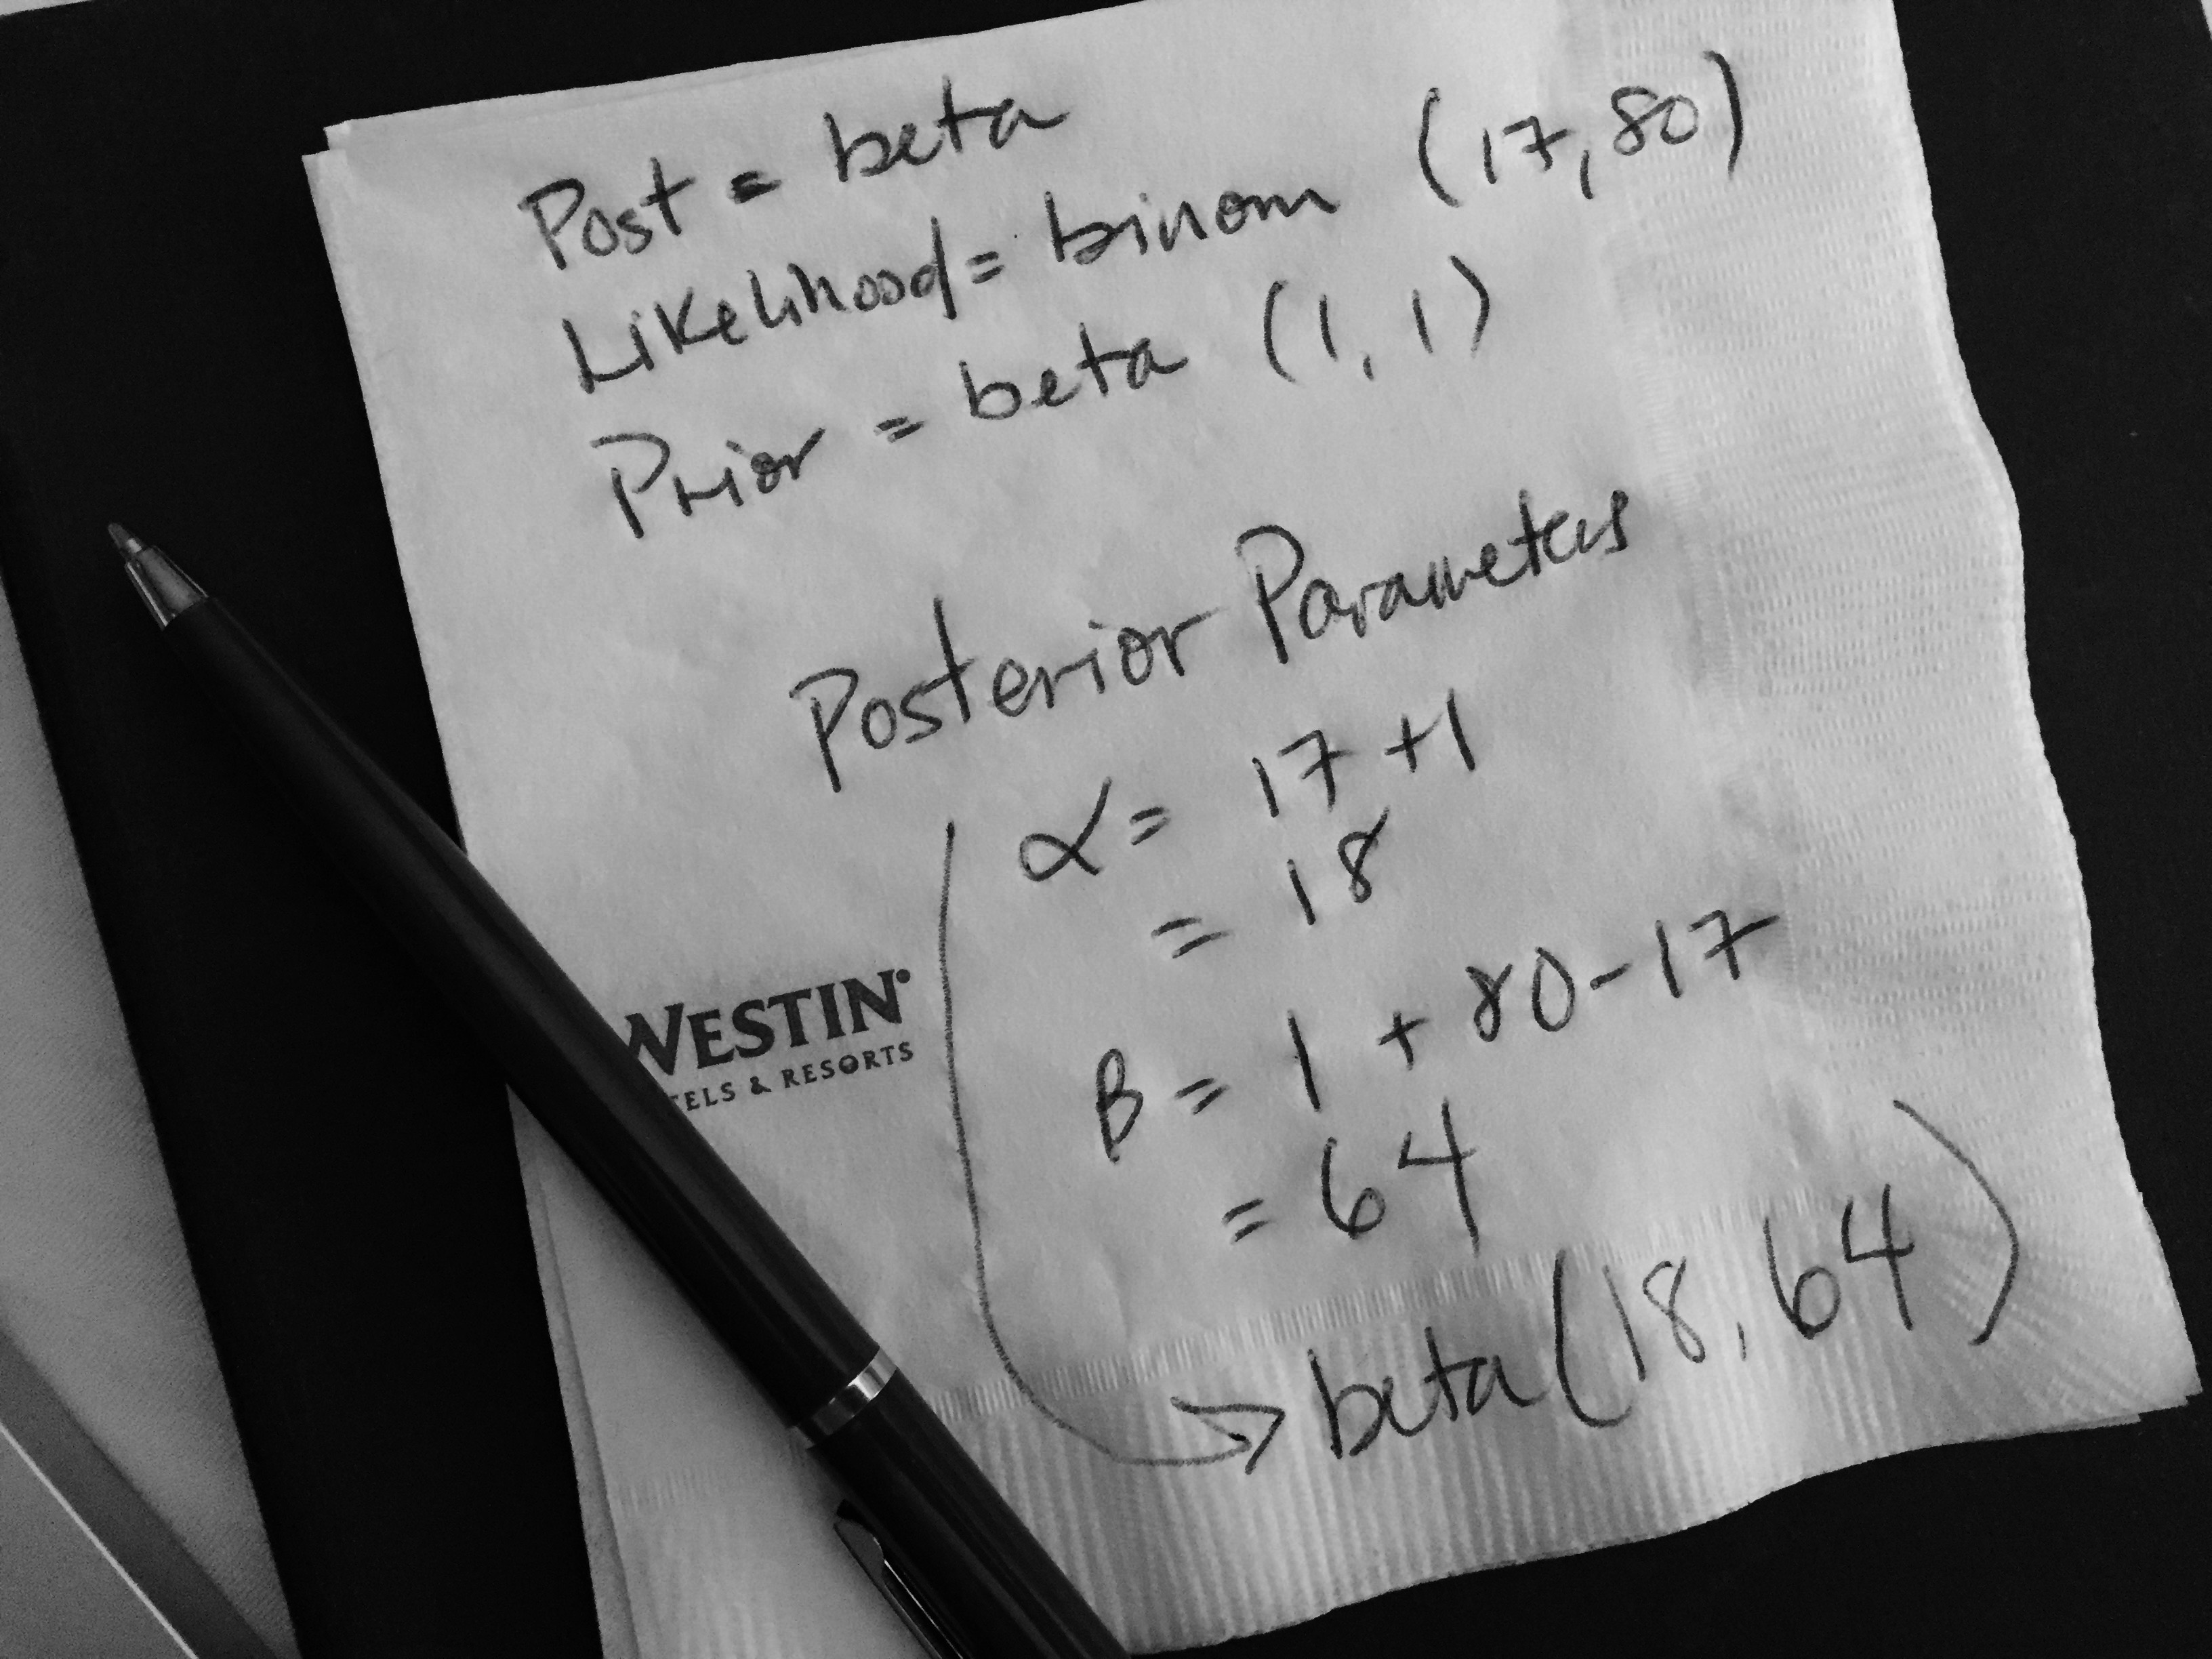 Post = beta
Likelihood = binom (17, 80)
Prior = beta (1, 1)
Posterior Parameters
α = 17 + 1
= 18
B = 1 + 80 - 17
= 64
→ beta (18, 64)
WESTIN®
& RESORTS